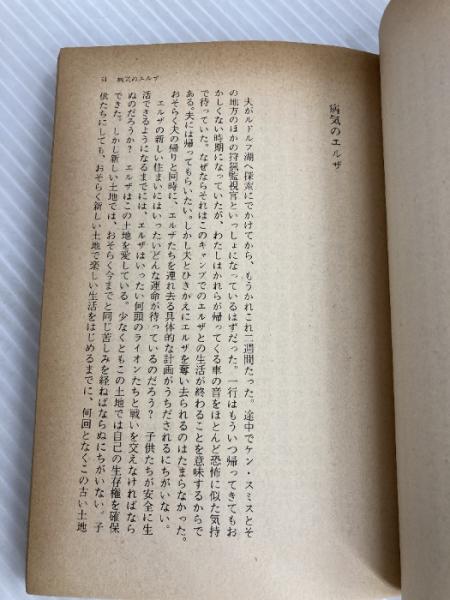 51 病気のエルザ
病気のエルザ
夫がルドルフ湖へ探索にでかけてから、もうかれこれ二週間たった。途中でケン・スミスとそ
の地方のほかの狩猟監視官といっしょになっているはずだった。一行はもういつ帰ってきてもお
かしくない時期になっていたが、わたしはかれらが帰ってくる車の音をほとんど恐怖に似た気持
で待っていた。なぜならそれはこのキャンプでのエルザとの生活が終わることを意味するからで
ある。夫には帰ってもらいたい。しかし夫とひきかえにエルザを奪い去られるのはたまらなかった。
おそらく夫の帰りと同時に、エルザたちを連れ去る具体的な計画がうちだされるにちがいない。
エルザの新しい住まいにはいったいどんな運命が待っているのだろう？　子供たちが安全に生
活できるようになるまでには、エルザはいったい何頭のライオンたちと戦いを交えなければなら
ぬのだろうか？　エルザはこの土地を愛している。少なくともこの土地では自己の生存権を確保
できた。しかし新しい土地では、おそらく今までと同じ苦しみを経ねばならぬにちがいない。子
供たちにしても、おそらく新しい土地で楽しい生活をはじめるまでに、何回となくこの古い土地